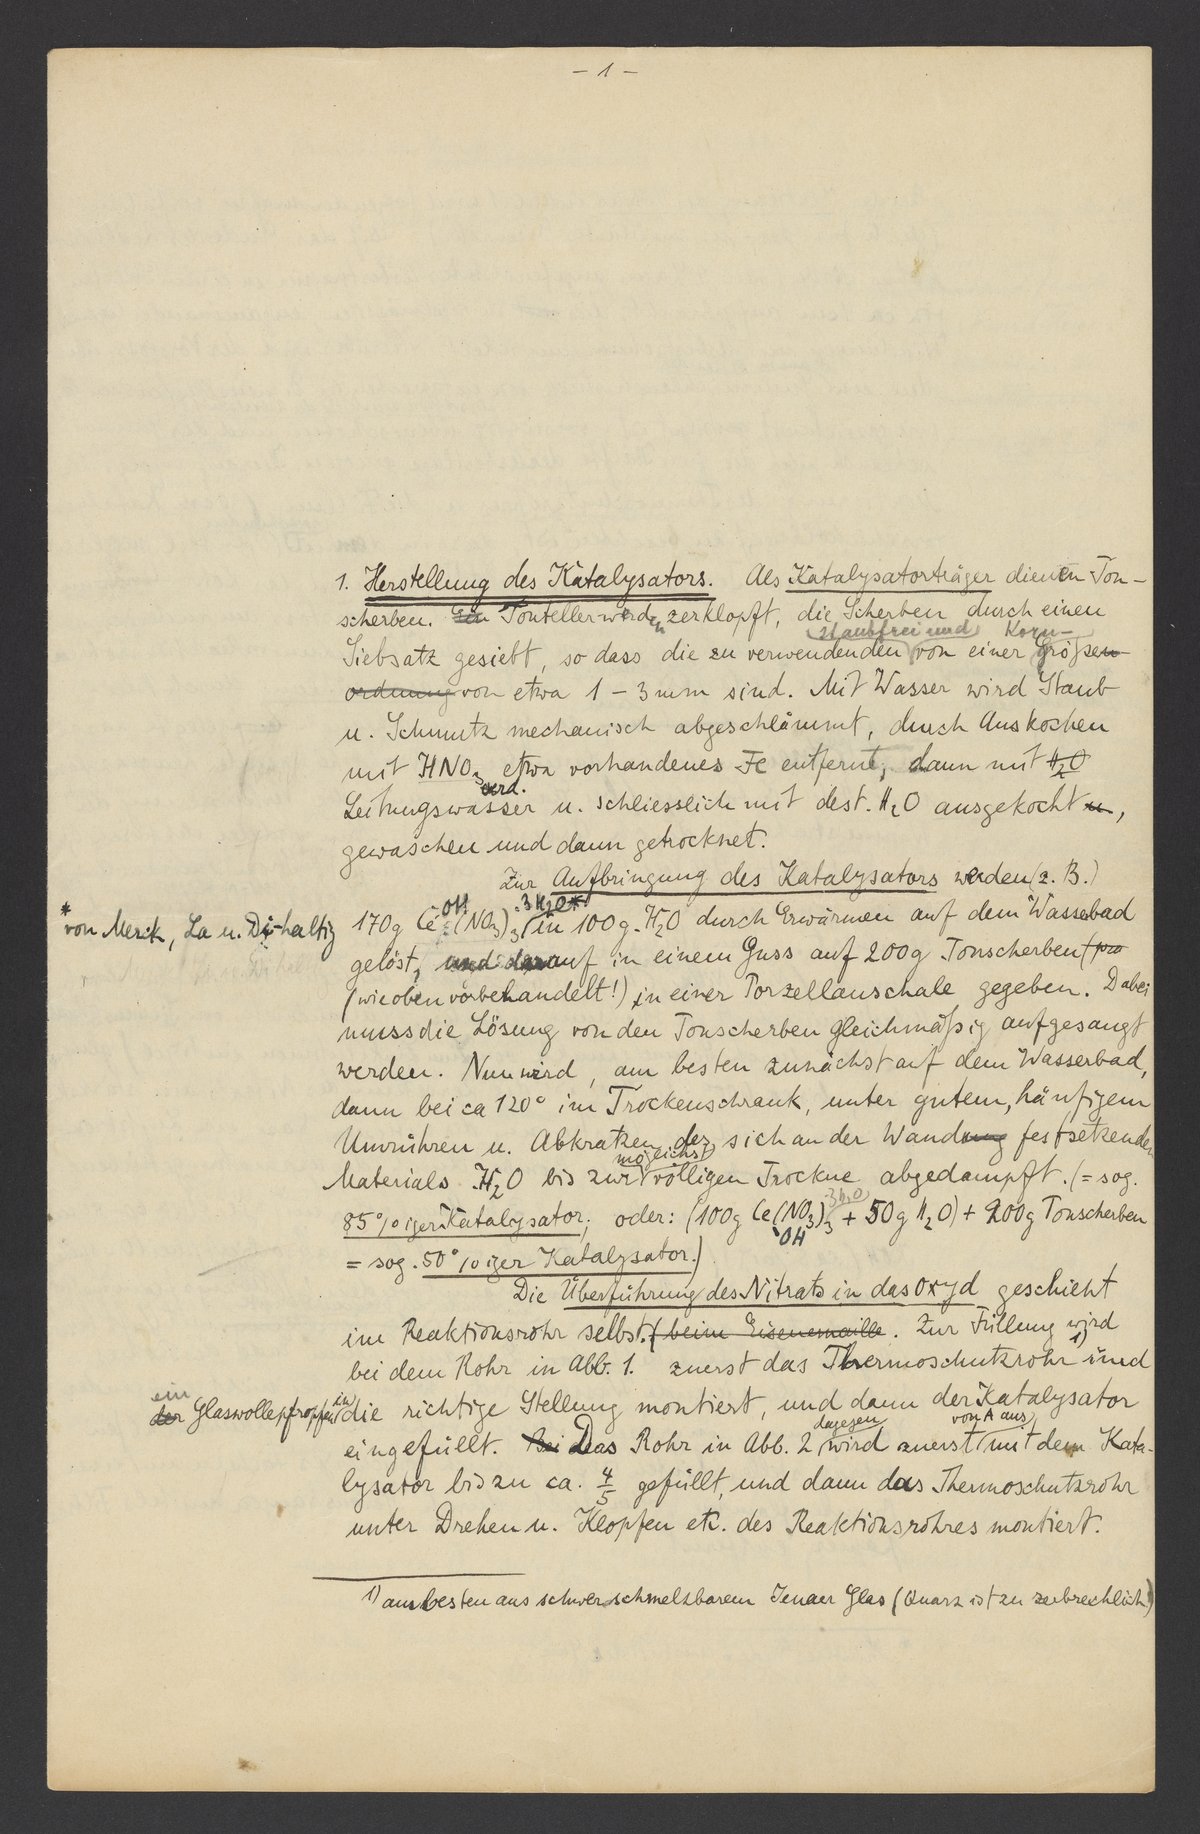 – 1 –
1. Herstellung des Katalysators. Als Katalysatorträger dienen Ton-
scherben. Ein Tonteller werden zerklopft, die Scherben durch einen
staubfrei und Korn-
Siebsatz gesiebt, so dass die zu verwendenden von einer größen-
ordnung von etwa 1 – 3 mm sind. Mit Wasser wird Staub
u. Schmutz mechanisch abgeschlämmt, durch Auskochen
mit HNO3 etwa vorhandenes Fe entfernt, dann mit H2O
verd.
Leitungswasser u. schliesslich mit dest. H2O ausgekocht u,
gewaschen und dann getrocknet.
Zur Aufbringung des Katalysators werden (z. B.)
OH 3 H2O*
170g Ce (NO3)3 in 100g H2O durch Erwärmen auf dem Wasserbad
* von Merck, La u. Di-haltig
gelöst, und darauf in einem Guss auf 200g Tonscherben (pro
(wie oben vorbehandelt!) in einer Porzellanschale gegeben. Dabei
muss die Lösung von den Tonscherben gleichmäßig aufgesaugt
werden. Nun wird, am besten zunächst auf dem Wasserbad,
dann bei ca 120° im Trockenschrank, unter gutem, häufigem
Umrühren u. Abkratzen des sich an der Wandung festsetzenden
möglichst
Materials H2O bis zur völligen Trockne abgedampft. (= sog.
85%iger Katalysator; oder: (100g Ce(NO3)3 + 50g H2O) + 200g Tonscherben
3H2O
OH
= sog. 50%iger Katalysator.)
Die Überführung des Nitrats in das Oxyd geschieht
im Reaktionsrohr selbst. (beim Eisenemaille. Zur Füllung wird
bei dem Rohr in Abb. 1. zuerst das Thermoschutzrohr 1) und
ein
der Glaswollepfropfen in die richtige Stellung montiert, und dann der Katalysator
dagegen von A aus
eingefüllt. Bei Das Rohr in Abb. 2 wird zuerst mit dem Kata-
lysator bis zu ca. 4/5 gefüllt, und dann das Thermoschutzrohr
unter Drehen u. Klopfen etc. des Reaktionsrohres montiert.
1) am besten aus schwerschmelzbarem Jenaer Glas (Quarz ist zu zerbrechlich)